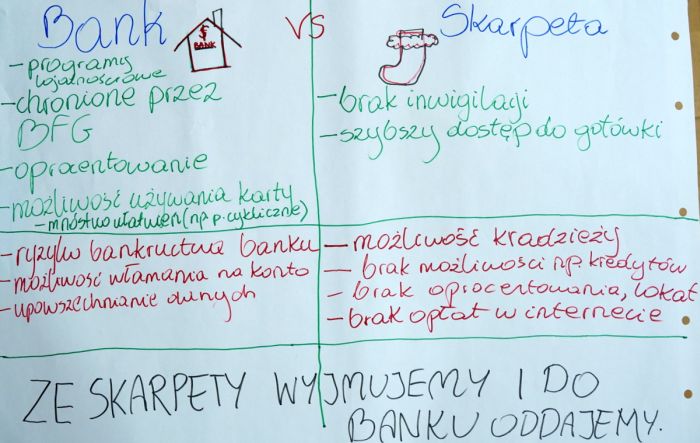 Bank VS Skarpeta
$
BANK
- programy
lojalnościowe
- chronione przez
BFG
- oprocentowanie
- możliwość używania karty
- mnóstwo ułatwień (np p. cykliczne)
- brak inwigilacji
- szybszy dostęp do gotówki
- ryzyko bankructwa banku
- możliwość włamania na konto
- upowszechnianie danych
- możliwość kradzieży
- brak możliwości np. kredytów
- brak oprocentowania, lokat
- brak opłat w internecie
ZE SKARPETY WYJMUJEMY I DO
BANKU ODDAJEMY.